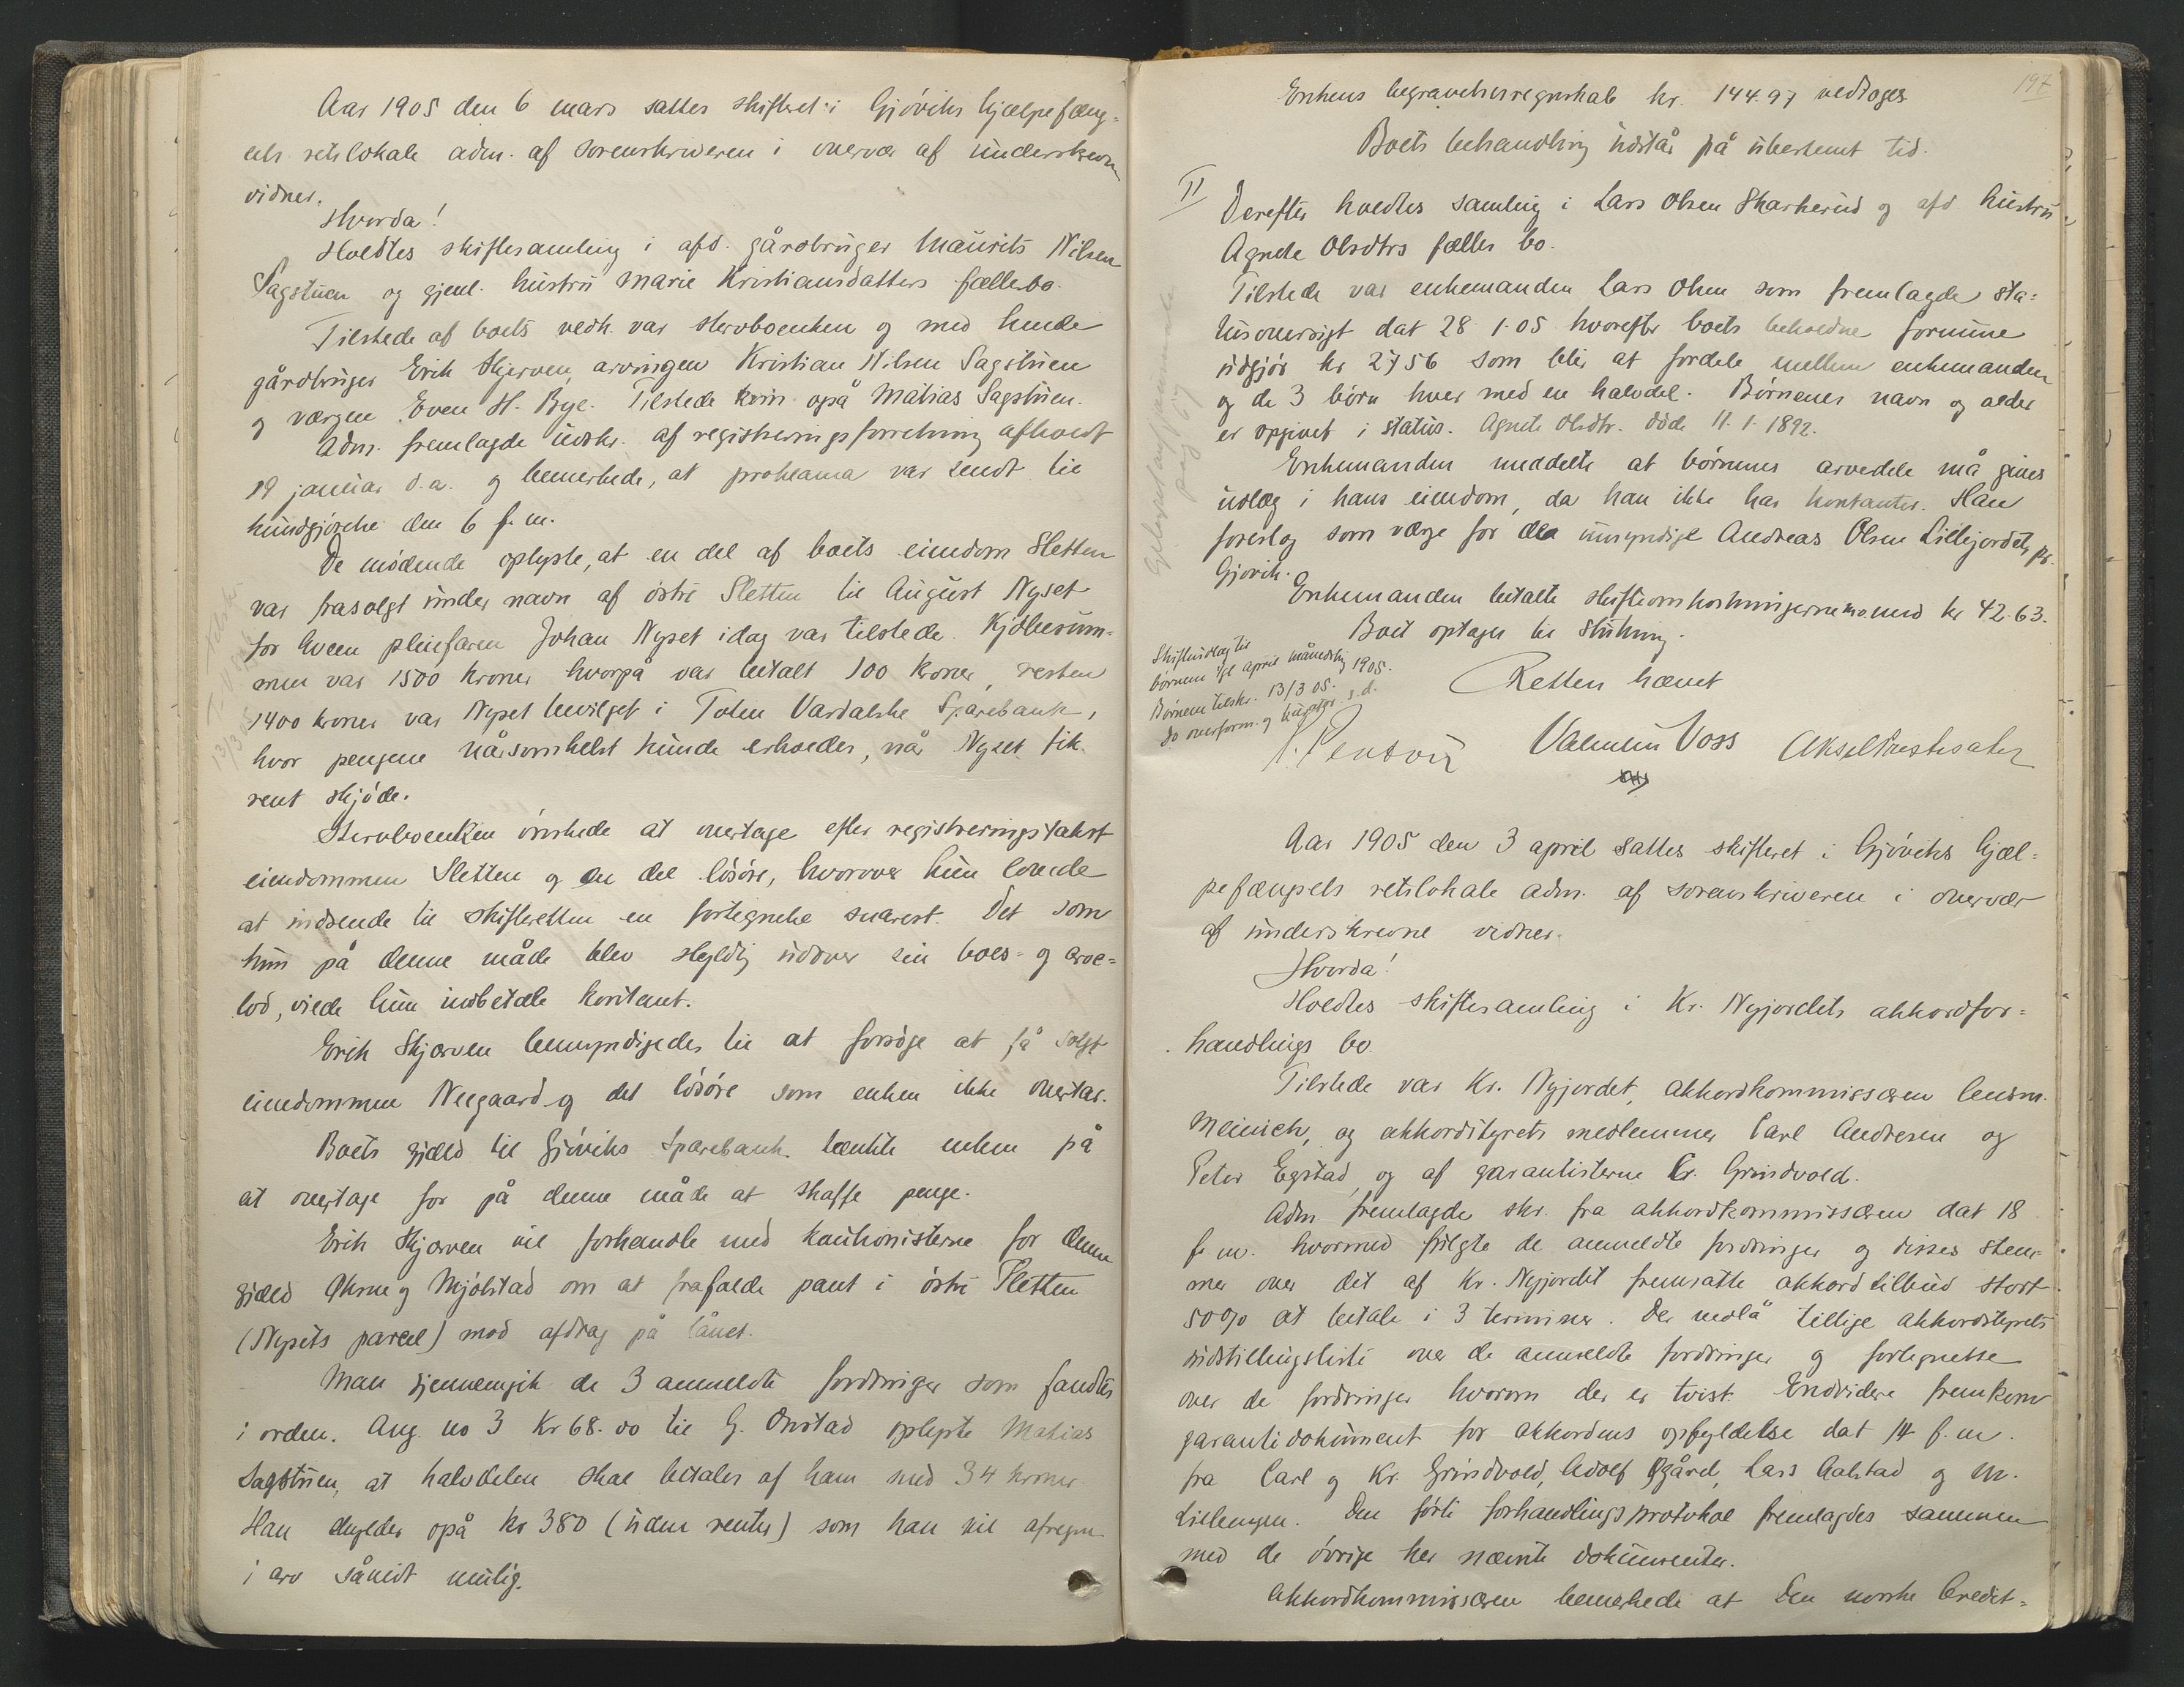 Aar 1905 den 6 mars sattes skifteret i Gjøviks hjælpefæng=
sels retslokale adm. af sorenskriveren i overvær af underskrevn
vidner.
Hvorda!
Holdtes skiftesamling i afd. gårdbruger Maurits Nilsen
Sagstuen og gjenl. hustru Marie Kristiansdatters fællesbo.
Tilstede af boets vedk. var stervboenken og med hende
gårdbruger Erik Skjerven, arvingen Kristian Nilsen Sagstuen
og værgen Even H. Bye. Tilstede kom også Matias Sagstuen.
Adm. fremlagde udskr. af registreringsforretning afholdt
19 januar d.a. og bemerkede, at proklama var sendt til
kundgjørelse den 6 f.m.
De mødende oplyste, at en del af boets eiendom Sletten
var frasolgt under navn af østre Sletten til August Nyset
for hvem pleiefaren Johan Nyset idag var tilstede. Kjøbesum=
men var 1500 kroner hvorpå var betalt 100 kroner, resten
1400 kroner var Nyset bevilget i Toten Vardalske Sparebank,
hvor pengene nårsomhelst kunde erholdes, når Nyset fik
rent skjøde.
Stervboenken ønskede at overtage efter registreringstakst
eiendommen Sletten og en del løsøre, hvorover hun lovede
at indsende til skifteretten en fortegnelse snarest. Det som
hun på denne måde blev skyldig udover sin boes- og arve=
lod, vilde hun indbetale kontant.
Erik Skjerven bemyndigedes til at forsøge at få solgt
eiendommen Neegaard og det løsøre som enken ikke overtar.
Boets gjæld til Gjøviks Sparebank tænkte enken på
at overtage for på denne måde at skaffe penge.
Erik Skjerven vil forhandle med kautionisterne for denne
gjæld og Mjølstad om at frafalde pant i østre Sletten
(Nysets parcel) mod afdrag på lånet.
Man gjennemgik de 3 anmeldte fordringer som fandtes
i orden. Ang. no 3 kr 68.00 til G. Onstad oplyste Matias
Sagstuen, at halvdelen skal betales af ham med 34 kroner
Han skylder også kr 380 (uden renter) som han vil afregne
i arv såvidt mulig.
197
Enkens begravelsesregnskab kr. 144.97 vedtoges
Boets behandling udstår på ubestemt tid.
II
Derefter holdtes samling i Lars Olsen Skarkerud og afd hustru
Agnete Olsdtrs fælles bo.
Tilstede var enkemanden Lars Olsen som fremlagde sta=
tusoversigt dat 28 1-05 hvorefter boets beholdne formue
udgjør kr 2756 som blir at fordele mellem enkemanden
og de 3 børn hver med en halvdel. Børnenes navn og alder
er opgivet i status. Agnete Olsdtr. døde 11-1-1892.
Enkemanden meddelte at børnenes arvedele må gives
udlæg i hans eiendom, da han ikke har kontanter. Han
foreslog som værge for de umyndige Andreas Olsen Lillejordet, pr.
Gjøvik.
Enkemanden betalte skifteomkostningerne med kr 42.63.
Boet optages til slutning.
Skifteudlæg til
børnene tgl april månedsting 1905.
Børnene tilskr. 13/3 05.
do overform. og s.d.
Retten hævet
Valentin Voss Aksel Prestesæter
Aar 1905 den 3 april sattes skifteret i Gjøviks hjæl=
pefængsels retslokale adm. af sorenskriveren i overvær
af underskrevne vidner.
Hvorda!
Holdtes skiftesamling i Kr. Nyjordets akkordfor=
handlings bo.
Tilstede var Kr. Nyjordet, akkordkommissæren lensm.
Meinich, og akkordstyrets medlemmer Carl Andresen og
Peter Egstad, og af garantisterne Kr. Grindvold.
Adm fremlagde skr. fra akkordkommissæren dat 18
f.m. hvormed fulgte de anmeldte fordringer og disses stem=
mer over det af Kr. Nyjordet fremsatte akkordtilbud stort
50% at betale i 3 terminer. Der vedlå tillige akkordstyrets
indstillingsliste over de anmeldte fordringer og fortegnelse
over de fordringer hvorom der er tvist. Endvidere fremkom
garantidokument for akkordens opfyldelse dat 14 f.m.
fra Carl og Kr. Grindvold, Adolf Øgård, Lars Aalstad og M.
Lillengen. Den førte forhandlingsprotokol fremlagdes sammen
med de øvrige her nævnte dokumenter.
Akkordkommissæren bemerkede at Den norske Credit=